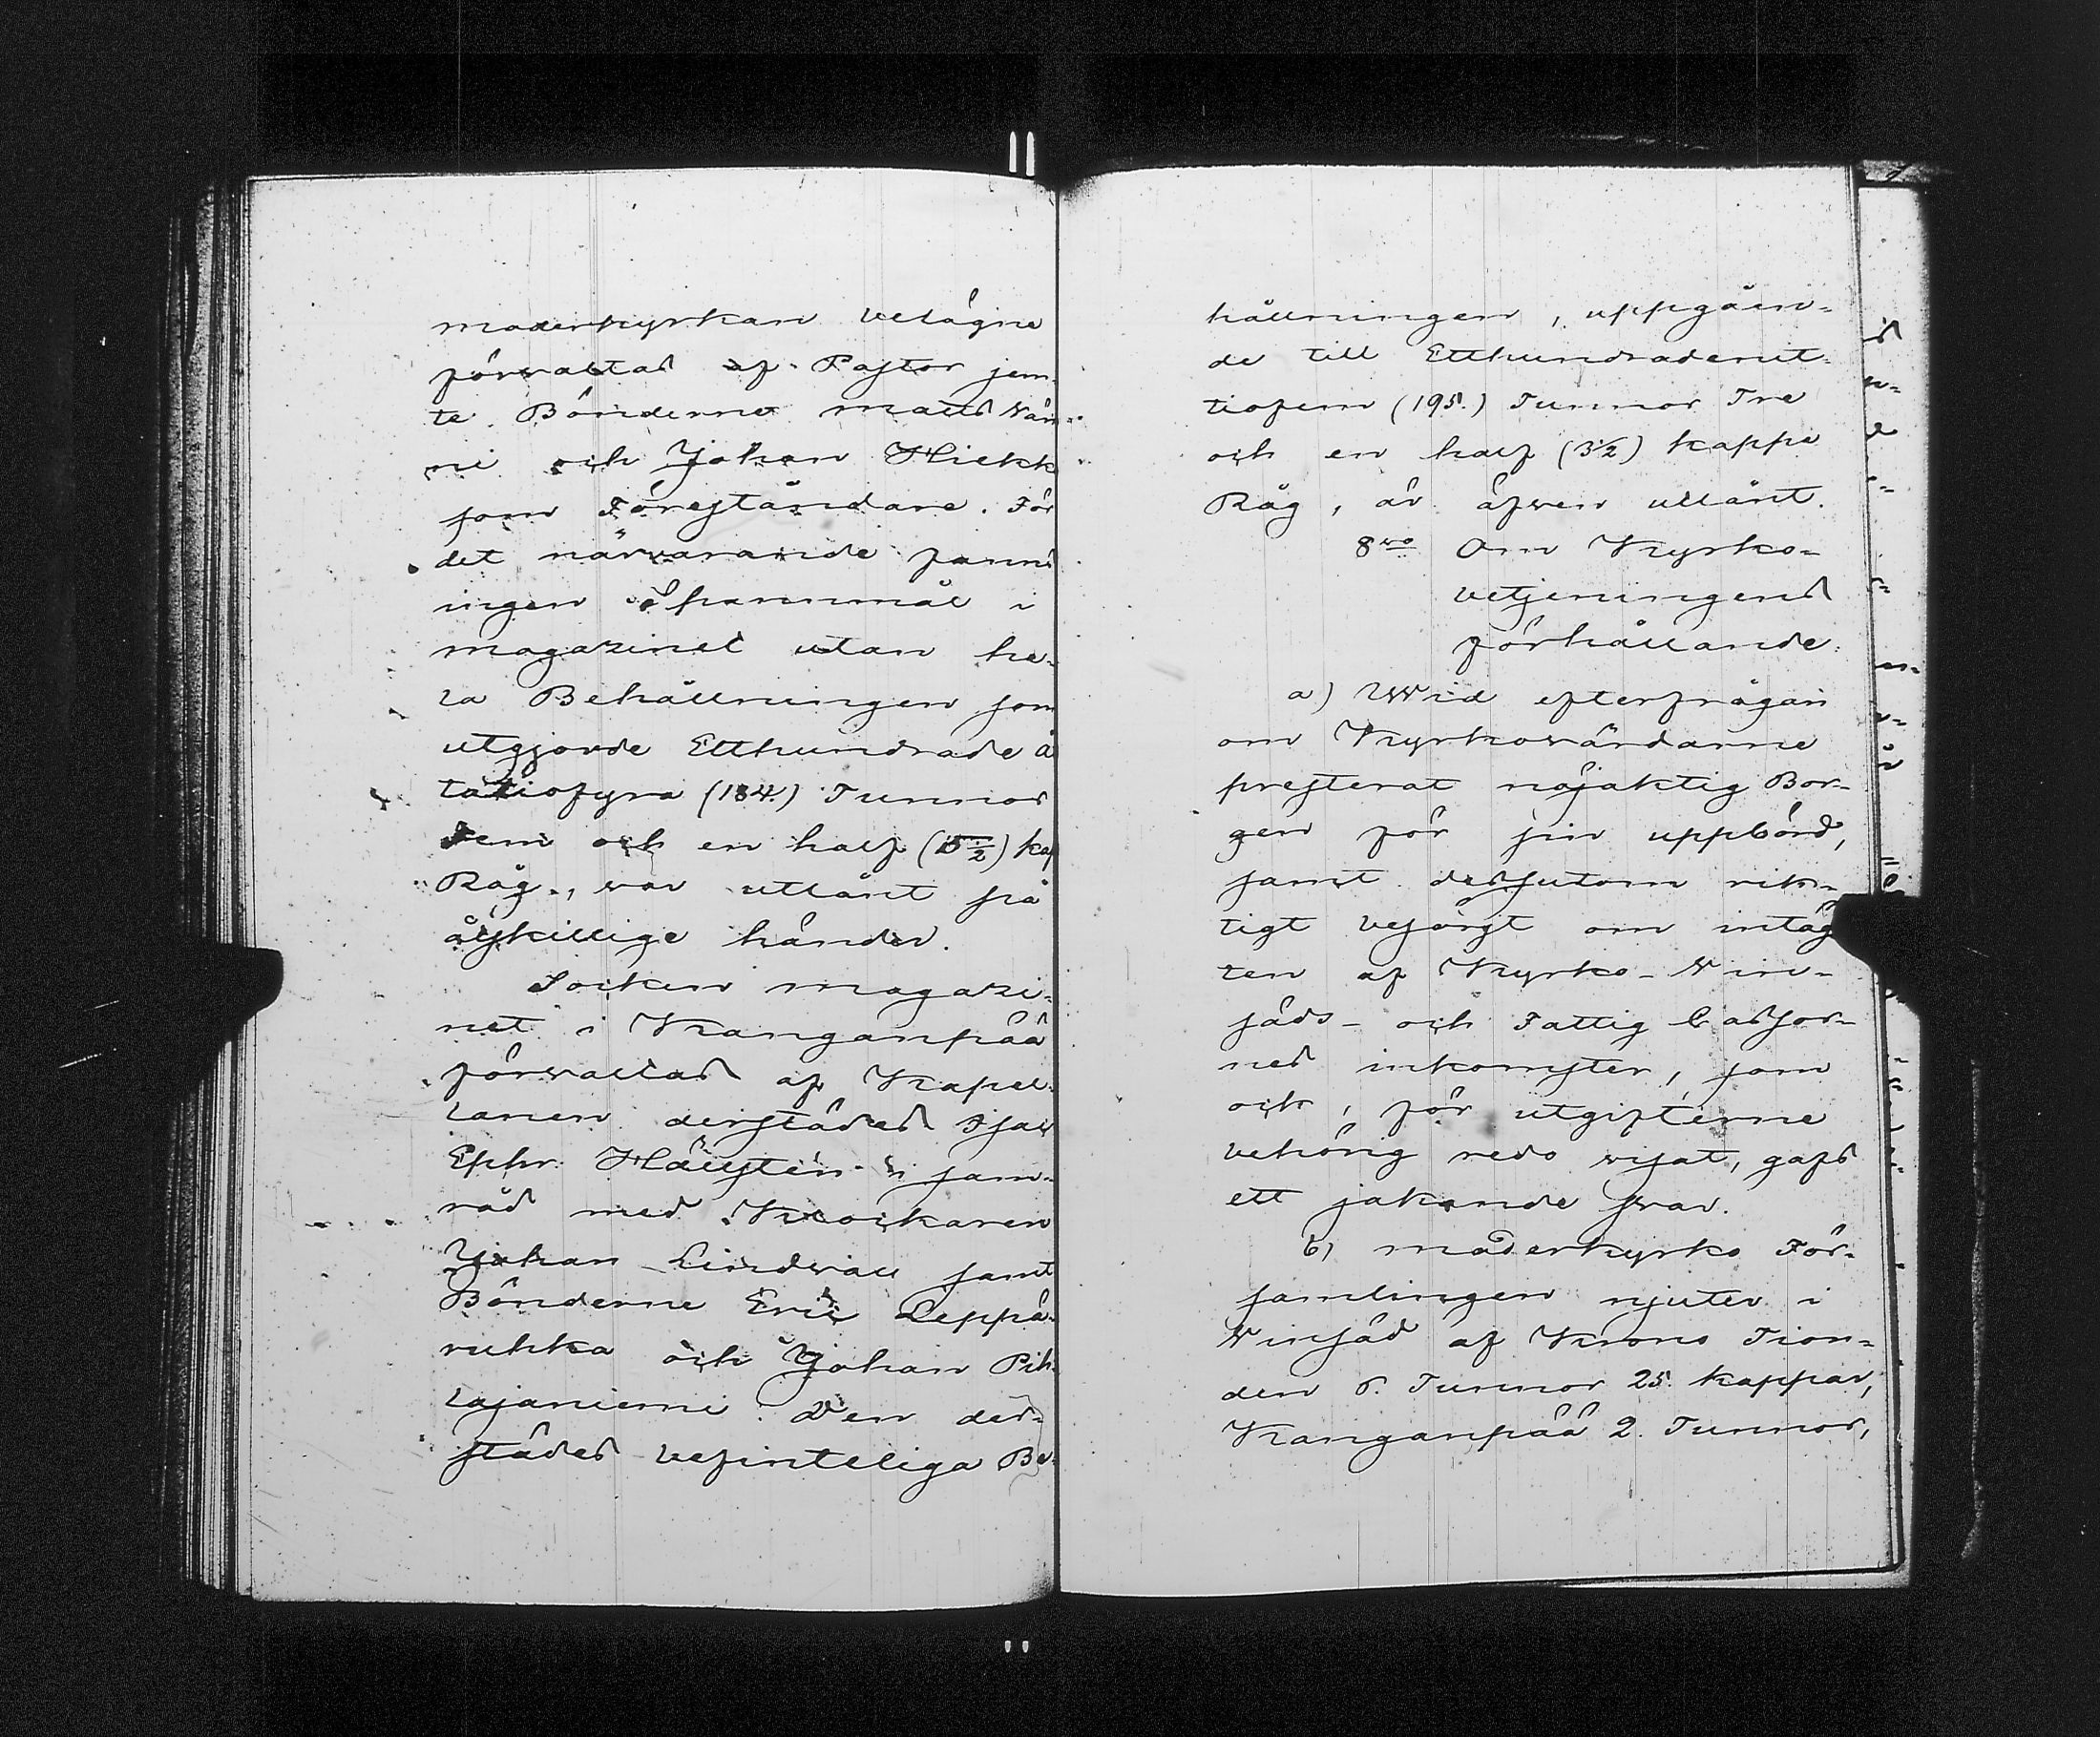 moderkyrkan belägne
förvaltas af Pastor jem-
te Bönderne Matts Nän-
ni och Johan Hiekk
som Föreståndare. För
det närvarande fanns
ingen spanmål i
magazinet utan he-
la Behållningen som
utgjorde Etthundrade å
tatiofyra (184.) Tunnor
Fem och en half (5 1/2) kap
Råg, var utlånt på
åtskillige händer.
Socken magazi-
net i Kanganpää
förvaltas af Kapel-
lanen derstädes Isac
Ephr. Hällstén i sam-
råd med Klockaren
Johan Lindwall samt
Bönderne Eric Leppä-
ruhka och Johan Pih-
lajaniemi. Den der-
städes befinteliga Be-
hållningen, uppgåen-
de till Etthundradenit-
tiofem (195.) Tunnor Tre
och en half (3 1/2) kappe
Råg, är äfven utlånt.
8vo Om Kyrko-
betjeningens
förhållande.
a) Wid efterfrågan
om Kyrkovärdarne
presterat nöjaktig Bor-
gen för sin uppbörd,
samt dessutom rik-
tigt besörgt om intäg
ten af Kyrko- Win-
säds- och Fattig Cassor-
nes inkomster, som
ock, för utgifterne
behörig redo wisat, gafs
ett jakande svar.
b) moderkyrko För-
samlingen njuter i
Winsäd af Krono Tion-
den 6. Tunnor 25. kappar,
Kanganpää 2. Tunnor,